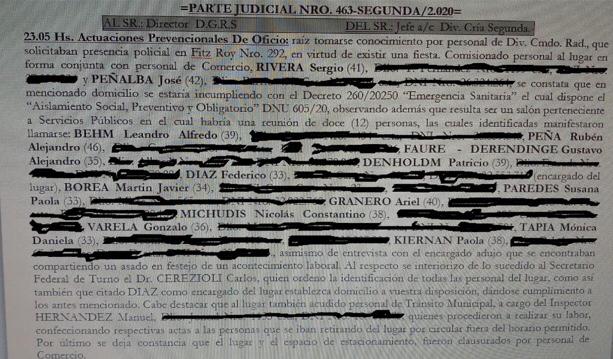 =PARTE JUDICIAL NRO. 463-SEGUNDA/2.020=
AL SR.: Director D.G.R.S DEL SR.: Jefe a/c Div. Cria Segunda.
23.05 Hs. Actuaciones Prevencionales De Oficio: raíz tomarse conocimiento por personal de Div. Cmdo. Rad., que
solicitaban presencia policial en Fitz Roy Nro. 292, en virtud de existir una fiesta. Comisionado personal al lugar en
forma conjunta con personal de Comercio, RIVERA Sergio (41),
y PEÑALBA José (42), se constata que en
mencionado domicilio se estaría incumpliendo con el Decreto 260/20250 “Emergencia Sanitaria” el cual dispone el
“Aislamiento Social, Preventivo y Obligatorio” DNU 605/20, observando además que resulta ser un salón perteneciente
a Servicios Públicos en el cual habría una reunión de doce (12) personas, las cuales identificadas manifestaron
llamarse: BEHM Leandro Alfredo (39), PEÑA Rubén
Alejandro (46), FAURE - DERENDINGE Gustavo
Alejandro (35), DENHOLDM Patricio (39),
DIAZ Federico (33), (encargado del
lugar), BOREA Martin Javier (34), PAREDES Susana
Paola (33), GRANERO Ariel (40),
MICHUDIS Nicolás Constantino (38).
VARELA Gonzalo (36), TAPIA Mónica
Daniela (33), KIERNAN Paola (38),
, asimismo de entrevista con el encargado adujo que se encontraban
compartiendo un asado en festejo de un acontecimiento laboral. Al respecto se interiorizo de lo sucedido al Secretario
Federal de Turno el Dr. CEREZIOLI Carlos, quien ordeno la identificación de todas las personal del lugar, como así
también que citado DIAZ como encargado del lugar establezca domicilio a vuestra disposición, dándose cumplimiento a
los antes mencionado. Cabe destacar que al lugar también acudido personal de Tránsito Municipal, a cargo del Inspector
HERNANDEZ Manuel, quienes procedieron a realizar su labor,
confeccionando respectivas actas a las personas que se iban retirando del lugar por circular fuera del horario permitido.
Por último se deja constancia que el lugar y el espacio de estacionamiento, fueron clausurados por personal de
Comercio.